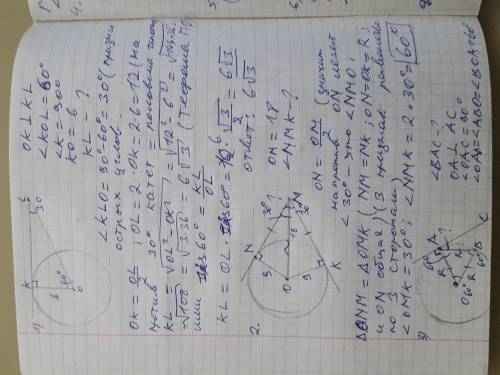 1)
K
L
30
6
60°
O
OK ⊥ KL
<KOL = 60°
<K = 90°
KO = 6
KL - ?
<KLO = 90° - 60° = 30° (
острых углов.
OK = OL/2; OL = 2·OK = 2·6 = 12 (на
против 30° катет = половина
KL = √(OL² - OK²) = √(12² - 6²) = √(144-36) =
= √108 = √(3·36) = 6√3 (теорема
или 60° = KL/OL
KL = OL · 60° = 12 · √3/2 = 6√3
Ответ: 6√3
2.
N
30°
9
O
18
M
9
30
K
OM = 18
<NMK - ?
ON = OM/2 (значит
напротив ON лежит
< 30° - это <NMO;
ΔONM = ΔOMK (NM = MK; ON = OK = R;
и ON общая) (3 признак равенства
по 3 сторонам)
<OMK = 30°; <NMK = 2·30° = 60°
3)
60°
A
R
R
O
60°
R
B
C
<BAC - ?
OA ⊥ AC
<OAC = 90°
<OAB = <ABO = <BOA = 60°